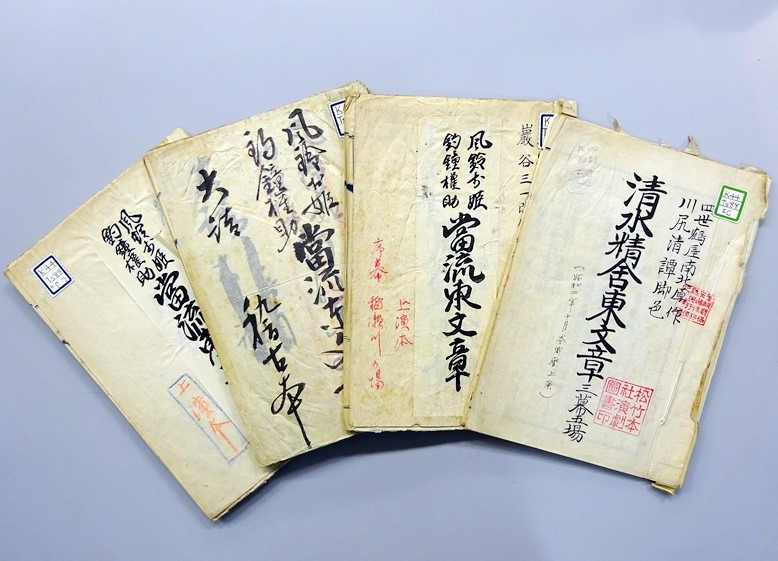 四世鶴屋南北原作
川尻清譚脚色
清水精舎東文章
三幕五場
(昭和二年十月本郷座上演)
松竹本
社演劇
圖書印
K44
巌谷三一
風鈴お姫
釣鐘權助
當流東文章
上演本
序幕 稲瀬川の場
風鈴お姫
釣鐘權助
當流東
大詰
稽古本
風鈴お姫
釣鐘權助
當流東
上演本
K44